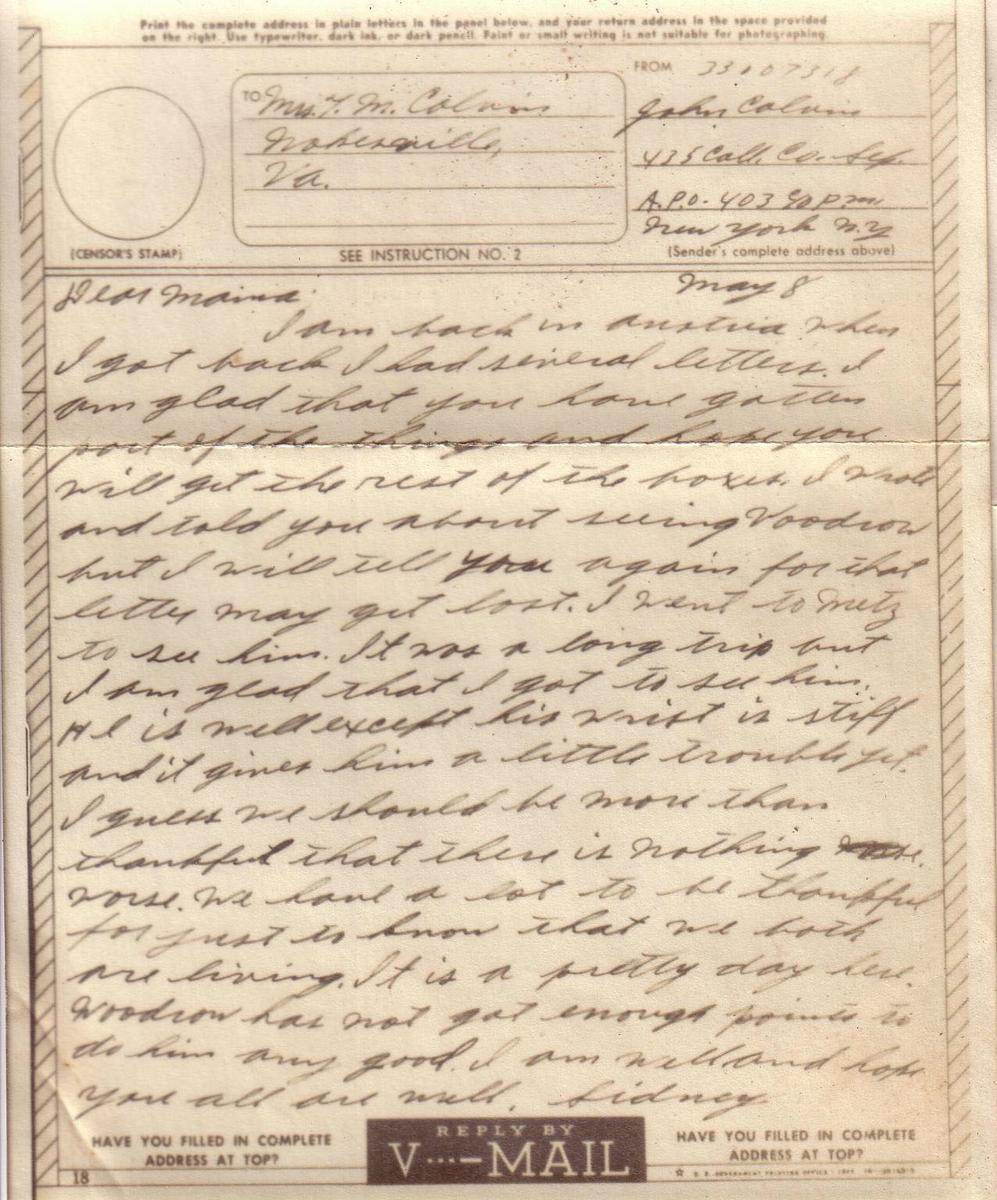 Print the complete address in plain letters in the panel below, and your return address in the space provided
on the right. Use typewriter, dark ink, or dark pencil. Faint or small writing is not suitable for photographing.
FROM 33007318
TO Mrs. T. M. Colvin
Nokesville,
Va.
John Colvin
435 Coll. Co. Sep.
A.P.O. 403 % P.M.
New York N.Y
(CENSOR'S STAMP)
SEE INSTRUCTION NO. 2
(Sender's complete address above)
Dear Mama May 8
I am back in austria when
I got back I had several letters. I
am glad that you have gotten
part of the things and hope you
will get the rest of the boxes. I wrote
and told you about seeing Woodrow
but I will tell you again for that
letter may get lost. I went to Metz
to see him. It was a long trip but
I am glad that I got to see him.
He is well except his wrist is stiff
and it gives him a little trouble yet.
I guess we should be more than
thankful that there is nothing
worse. We have a lot to be thankful
for just to know that we both
are living. It is a pretty day here.
Woodrow has not got enough points to
do him any good. I am well and hope
you all are well. Sidney
HAVE YOU FILLED IN COMPLETE
ADDRESS AT TOP?
REPLY BY
V···—MAIL
HAVE YOU FILLED IN COMPLETE
ADDRESS AT TOP?
18